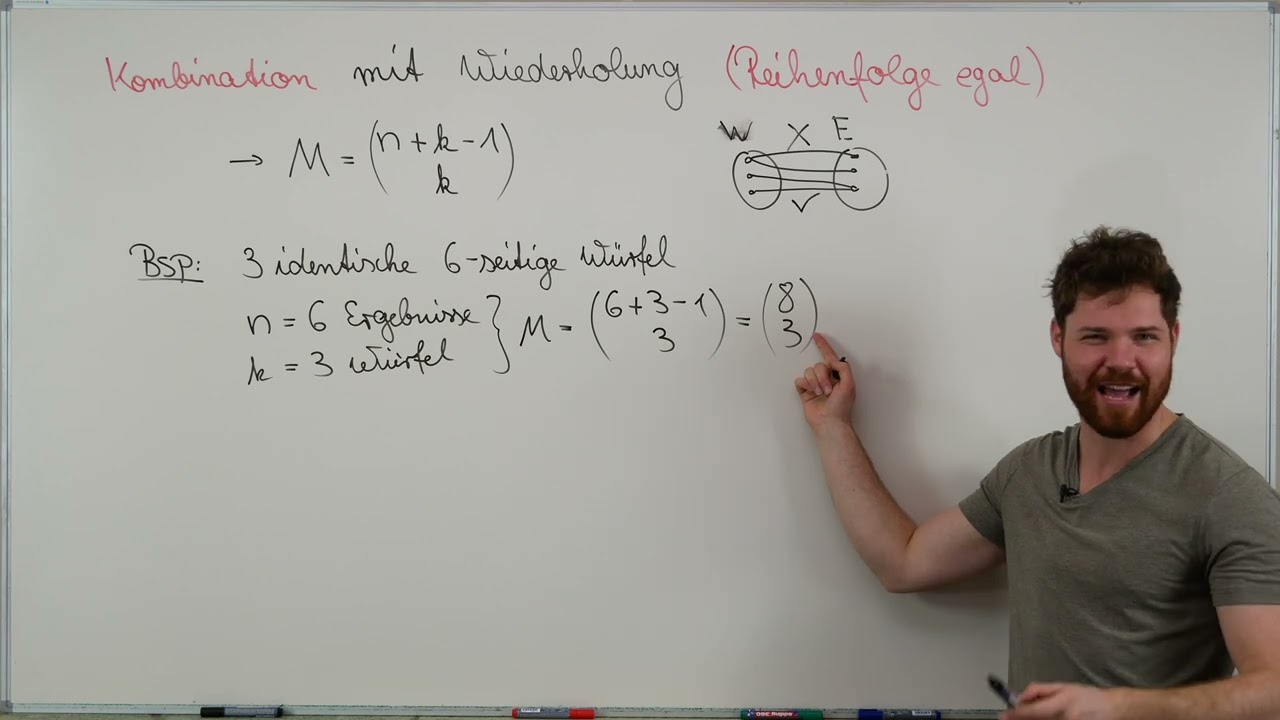 Kombination mit Wiederholung (Reihenfolge egal)
→ M = (n + k - 1
k)
W X E
✓
BSP: 3 identische 6-seitige Würfel
n = 6 Ergebnisse } M = (6 + 3 - 1
3) = (8
3)
k = 3 Würfel